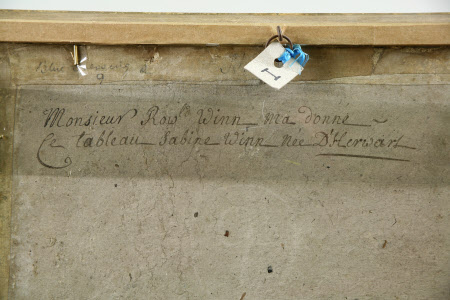 Monsieur Row.^d Winn ma donné
Ce tableau Sabine Winn née D'Herwart
9